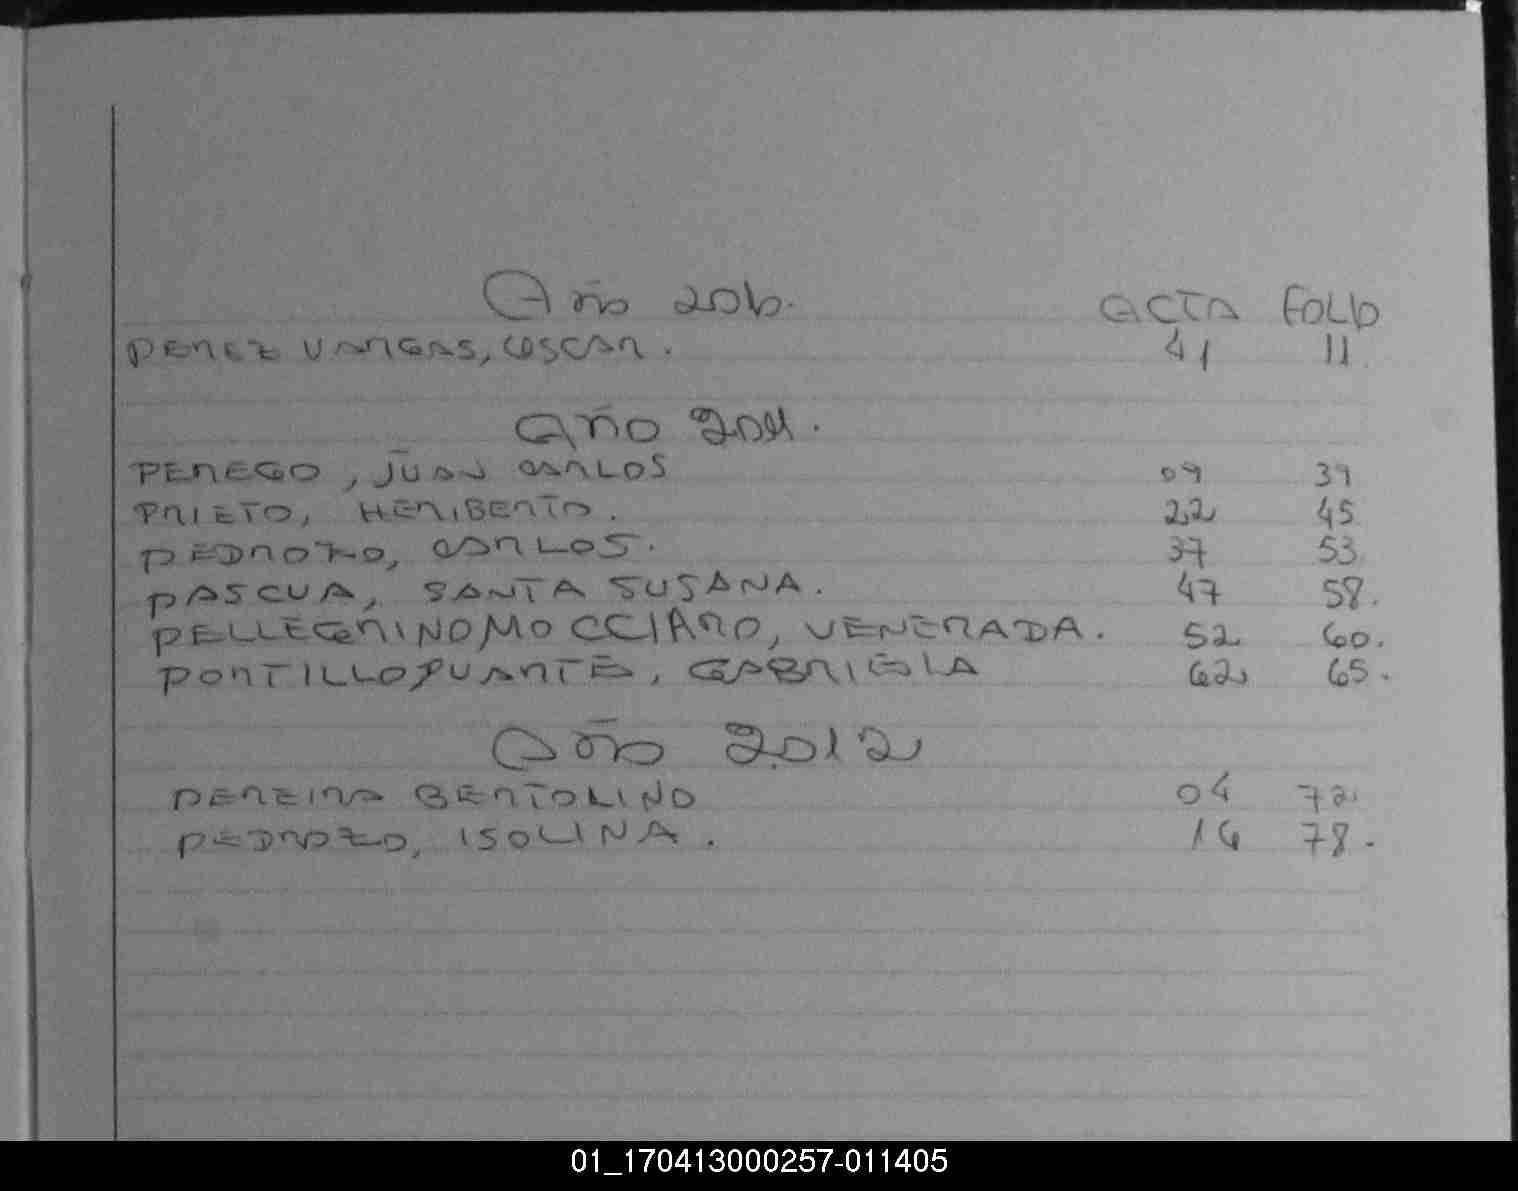 Año 2010. ACTA FOLIO
PEREZ VARGAS, OSCAR. 41 11
Año 2011.
PEREGO, JUAN CARLOS 09 39
PRIETO, HERIBERTO. 22 45
PEDROZO, CARLOS. 37 53
PASCUA, SANTA SUSANA. 47 58.
PELLEGRINO MOCCIARO, VENERADA. 52 60.
PORTILLO DUARTE, GABRIELA 62 65.
Año 2012
PEREIRA BERTOLINO 04 72
PEDROZO, ISOLINA. 16 78.
01_170413000257-011405